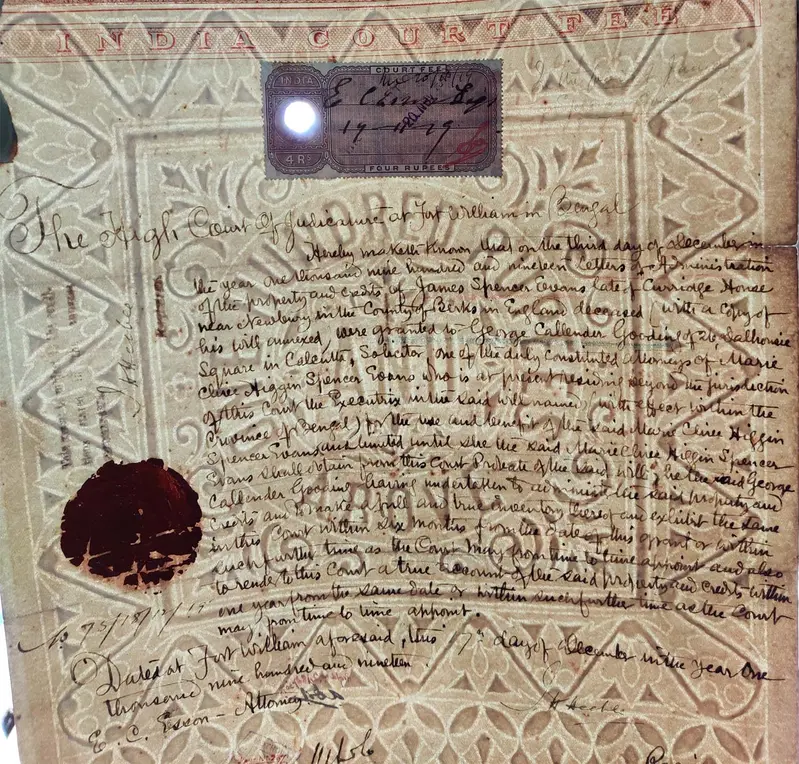 INDIA COURT FEE
COURT FEE
INDIA
4 RS
FOUR RUPEES
The High Court of Judicature at Fort William in Bengal
Hereby maketh known that on the third day of December in
the year one thousand nine hundred and nineteen Letters of Administration
of the property and credits of James Spencer Evans late of Curridge House
near Newbury in the County of Berks in England deceased (with a copy of
his will annexed) were granted to George Callender Gooding of 26 Dalhousie
Square in Calcutta, Solicitor, one of the duly constituted attorneys of Marie
Higgin Spencer Evans who is at present residing beyond the jurisdiction
of this Court the Executrix in the said will named (with effect within the
Province of Bengal) for the use and benefit of the said Marie Higgin
Spencer Evans and limited until she the said Marie Higgin Spencer
Evans shall obtain from this Court Probate of the said will, he the said George
Callender Gooding having undertaken to administer the said property and
credits and to make a full and true inventory thereof and exhibit the same
in this Court within six months from the date of this grant or within
such further time as the Court may from time to time appoint and also
to render to this Court a true account of the said property and credits within
one year from the same date or within such further time as the Court
may from time to time appoint.
Dated at Fort William aforesaid, this day of December in the year One
thousand nine hundred and nineteen.
E. C. Esson - Attorney